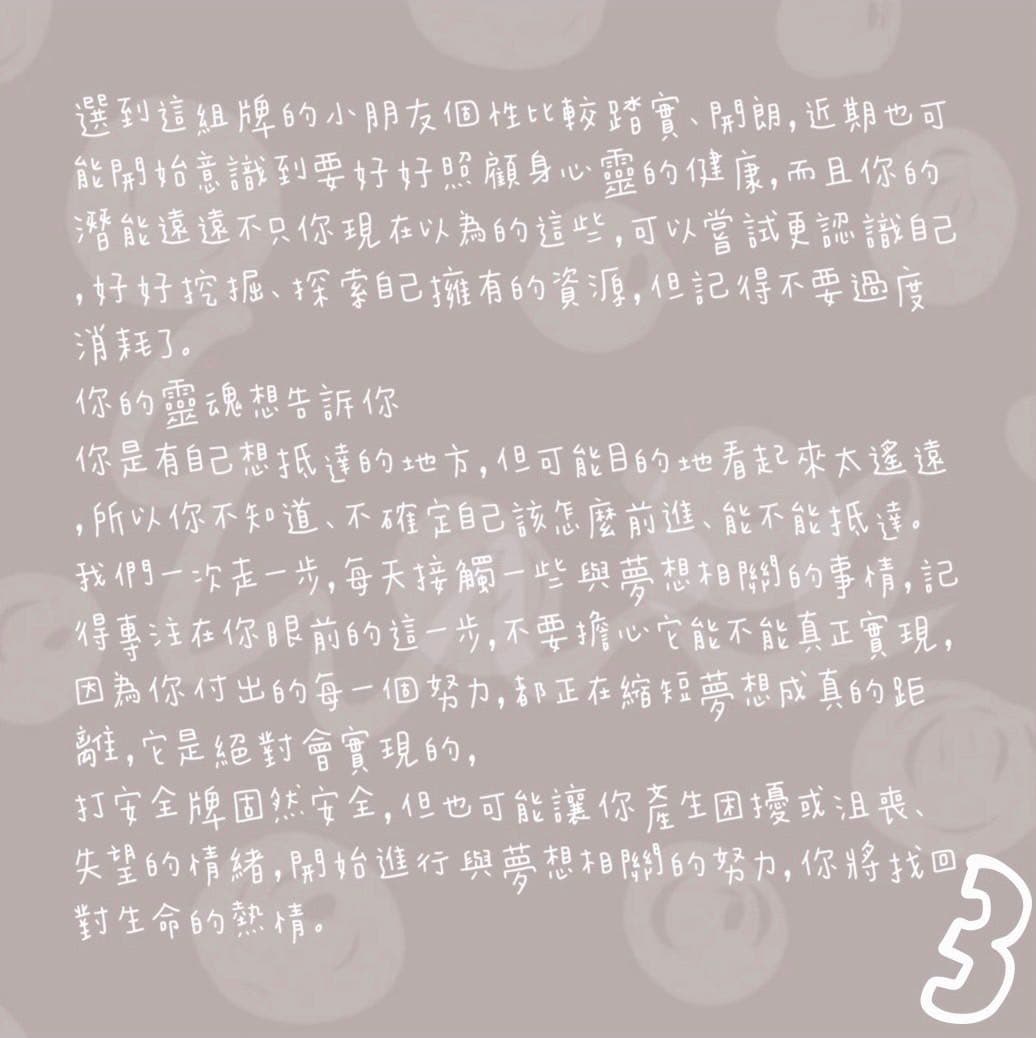 選到這組牌的小朋友個性比較踏實、開朗,近期也可
能開始意識到要好好照顧身心靈的健康,而且你的
潛能遠遠不只你現在以為的這些,可以嘗試更認識自己
,好好挖掘、探索自己擁有的資源,但記得不要過度
消耗了。
你的靈魂想告訴你
你是有自己想抵達的地方,但可能目的地看起來太遙遠
,所以你不知道、不確定自己該怎麼前進、能不能抵達。
我們一次走一步,每天接觸一些與夢想相關的事情,記
得專注在你眼前的這一步,不要擔心它能不能真正實現,
因為你付出的每一個努力,都正在縮短夢想成真的距
離,它是絕對會實現的,
打安全牌固然安全,但也可能讓你產生困擾或沮喪、
失望的情緒,開始進行與夢想相關的努力,你將找回
對生命的熱情。
3